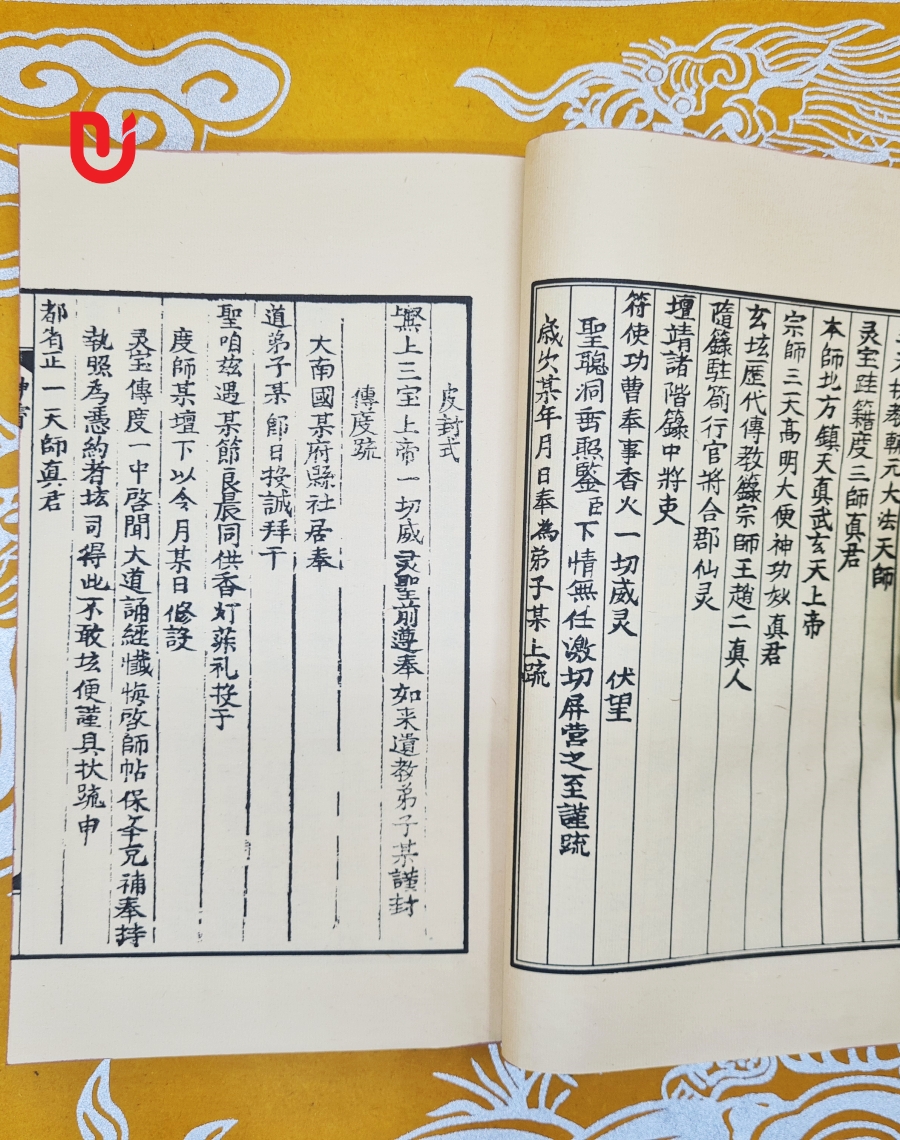 天師
灵宝䟦籍度三師真君
本師北方鎮天真武玄天上帝
宗師三天高明大使神功妙真君
玄坛歷代傳教籙宗師王趙二真人
隋籙駐箚行官將合郡仙灵
壇靖諸階籙中將吏
符使功曹奉事香火一切威灵　伏望
聖聰洞垂照鑒臣下情無任激切屏营之至謹疏
歲次某年月日奉為弟子某上疏
皮封式
無上三宝上帝一切威灵聖前遵奉如来遺教弟子某謹封
傳度疏
大南國某府縣社居奉
道弟子某節日投誠拜干
聖咱玆遇某節良晨同供香灯菜礼投于
度師某壇下以今月某日修設
灵宝傳度一中啓聞大道誦經懺悔啓師帖保奉充補奉持
執照為憑約者坛司得此不敢坛便謹具状疏申
都省正一天師真君